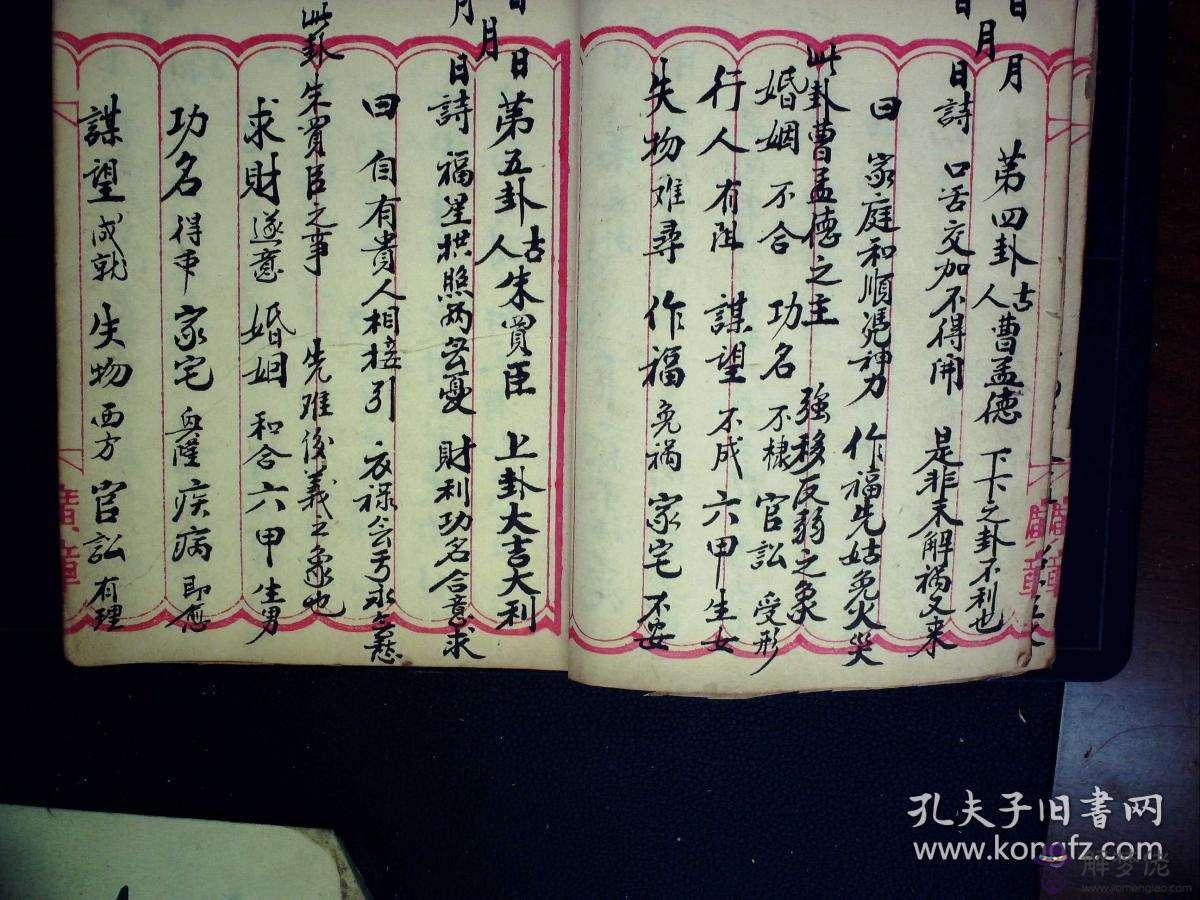 日月
月
第四卦 古人 曹孟德 下下之卦不利也
日詩 口舌交加不得開 是非未解禍又来
曰 家庭和順憑神力 作福先姑免火災
此卦曹孟德之主 強移反弱之象
婚姻 不合 功名 不棣 官訟 受形
行人 有阻 謀望 不成 六甲 生女
失物 难尋 作福 免禍 家宅 不安
日月
月
日 第五卦 古人 朱買臣 上卦大吉大利
日詩 福星拱照病無憂 財利功名合意求
曰 自有貴人相接引 衣禄
此卦朱買臣之事 先难後義之象也
求財 遂意 婚姻 和合 六甲 生男
功名 得中 家宅 疾病 即應
謀望 成就 失物 西方 官訟 有理
廣章
廣章
孔夫子旧书网
www.kongfz.com
解梦佬
www.jiemenglao.com